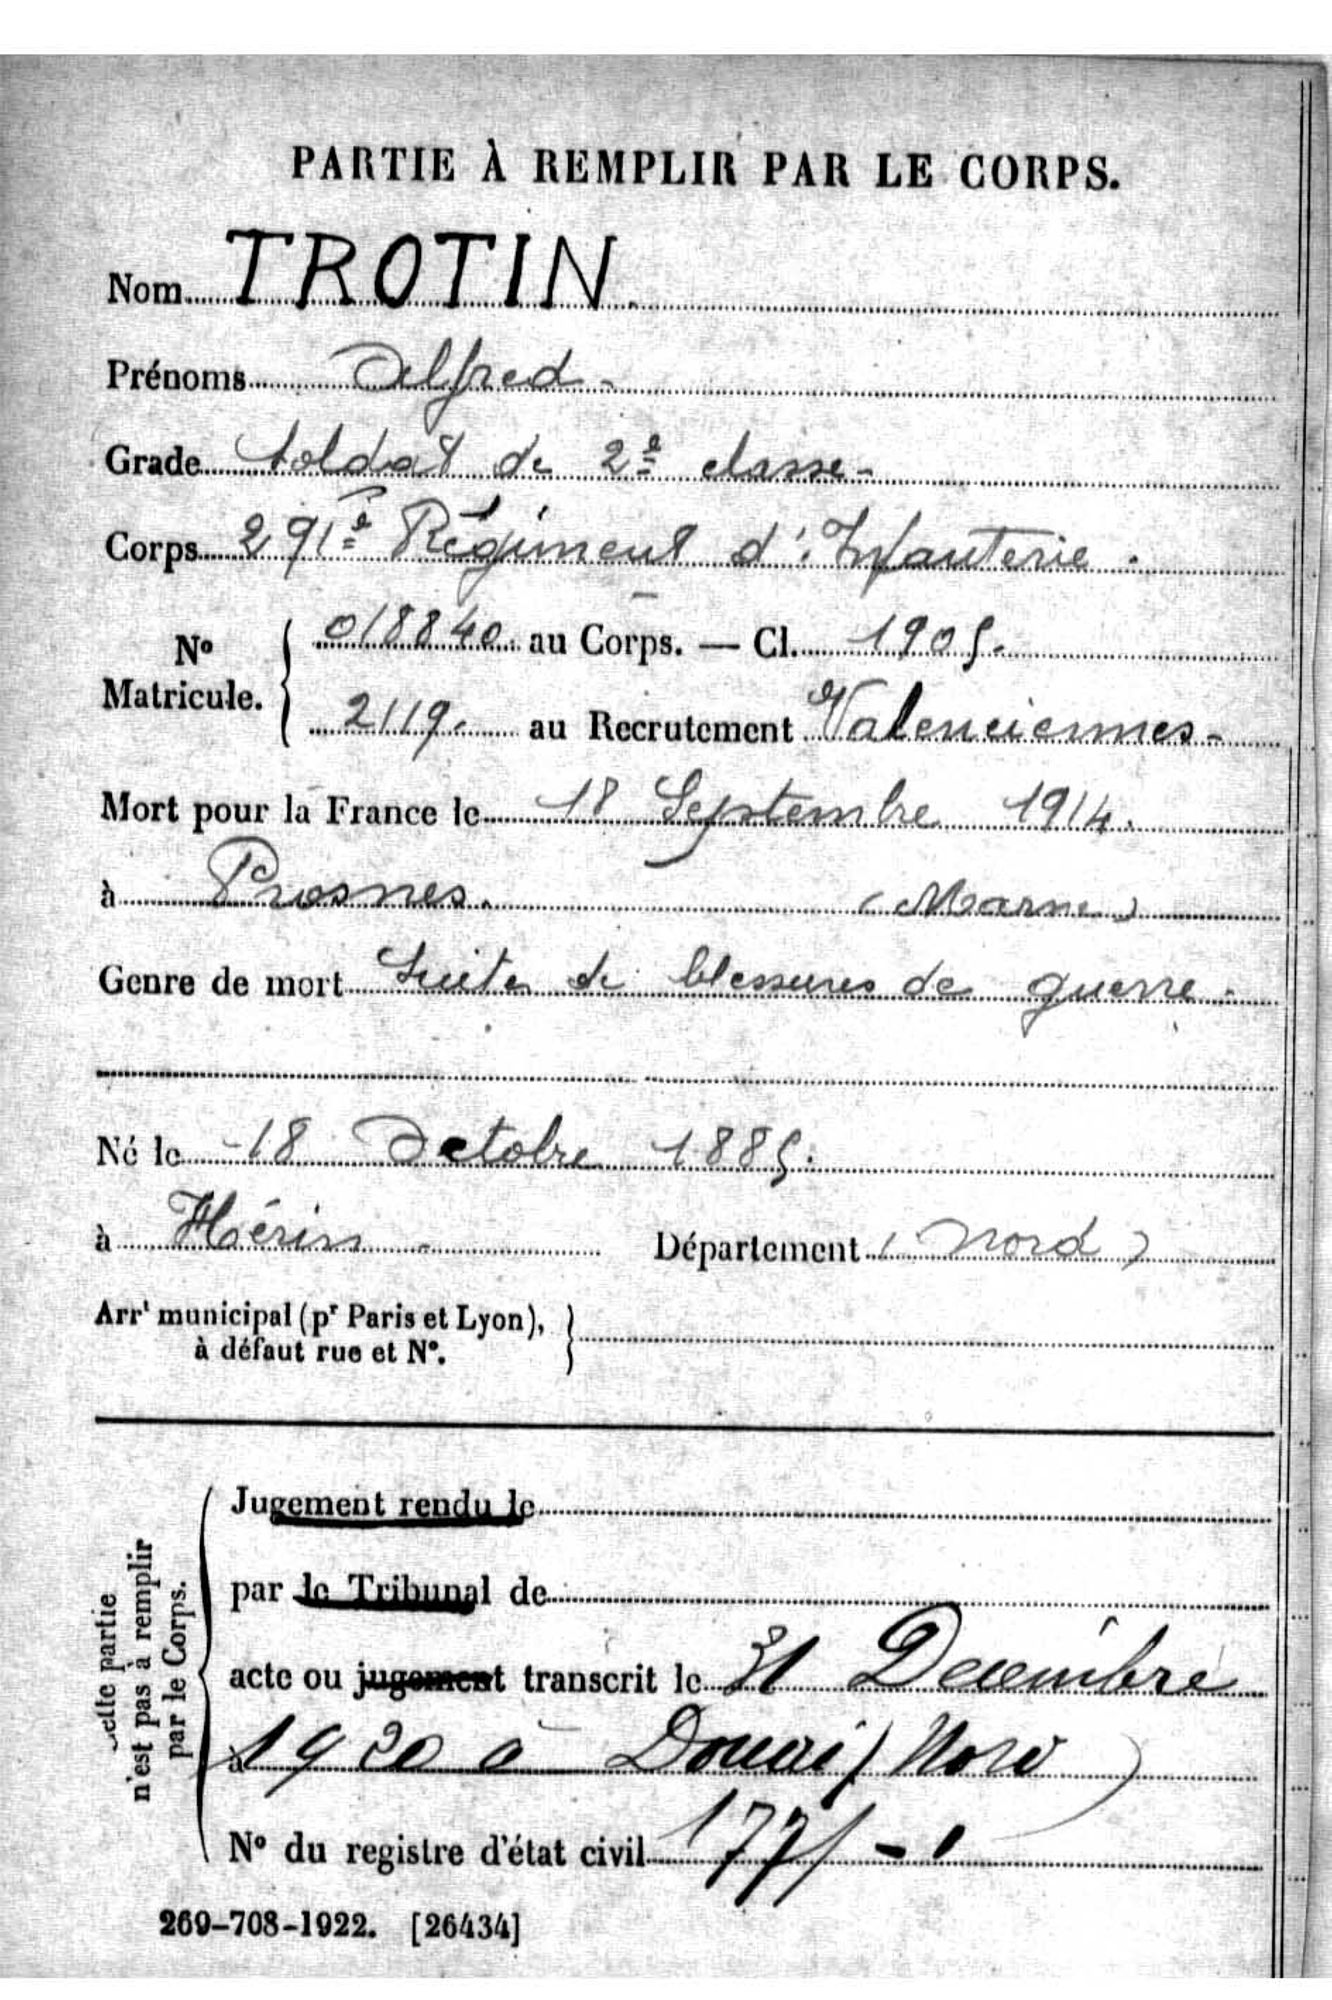 PARTIE À REMPLIR PAR LE CORPS.
Nom TROTIN
Prénoms Alfred
Grade Soldat de 2e classe
Corps 291e Régiment d'Infanterie.
No Matricule. { 018840. au Corps. — Cl. 1905.
2119. au Recrutement Valenciennes
Mort pour la France le 18 Septembre 1914.
à Prosnes. (Marne)
Genre de mort Suites de blessures de guerre.
Né le 18 Octobre 1885.
à Département (Nord)
Arrt municipal (pr Paris et Lyon),
à défaut rue et No.
Cette partie
n'est pas à remplir
par le Corps.
Jugement rendu le
par le Tribunal de
acte ou jugement transcrit le 31 Decembre
à 1920 à Douai (Nord)
No du registre d'état civil 177/
269-708-1922. [26434]